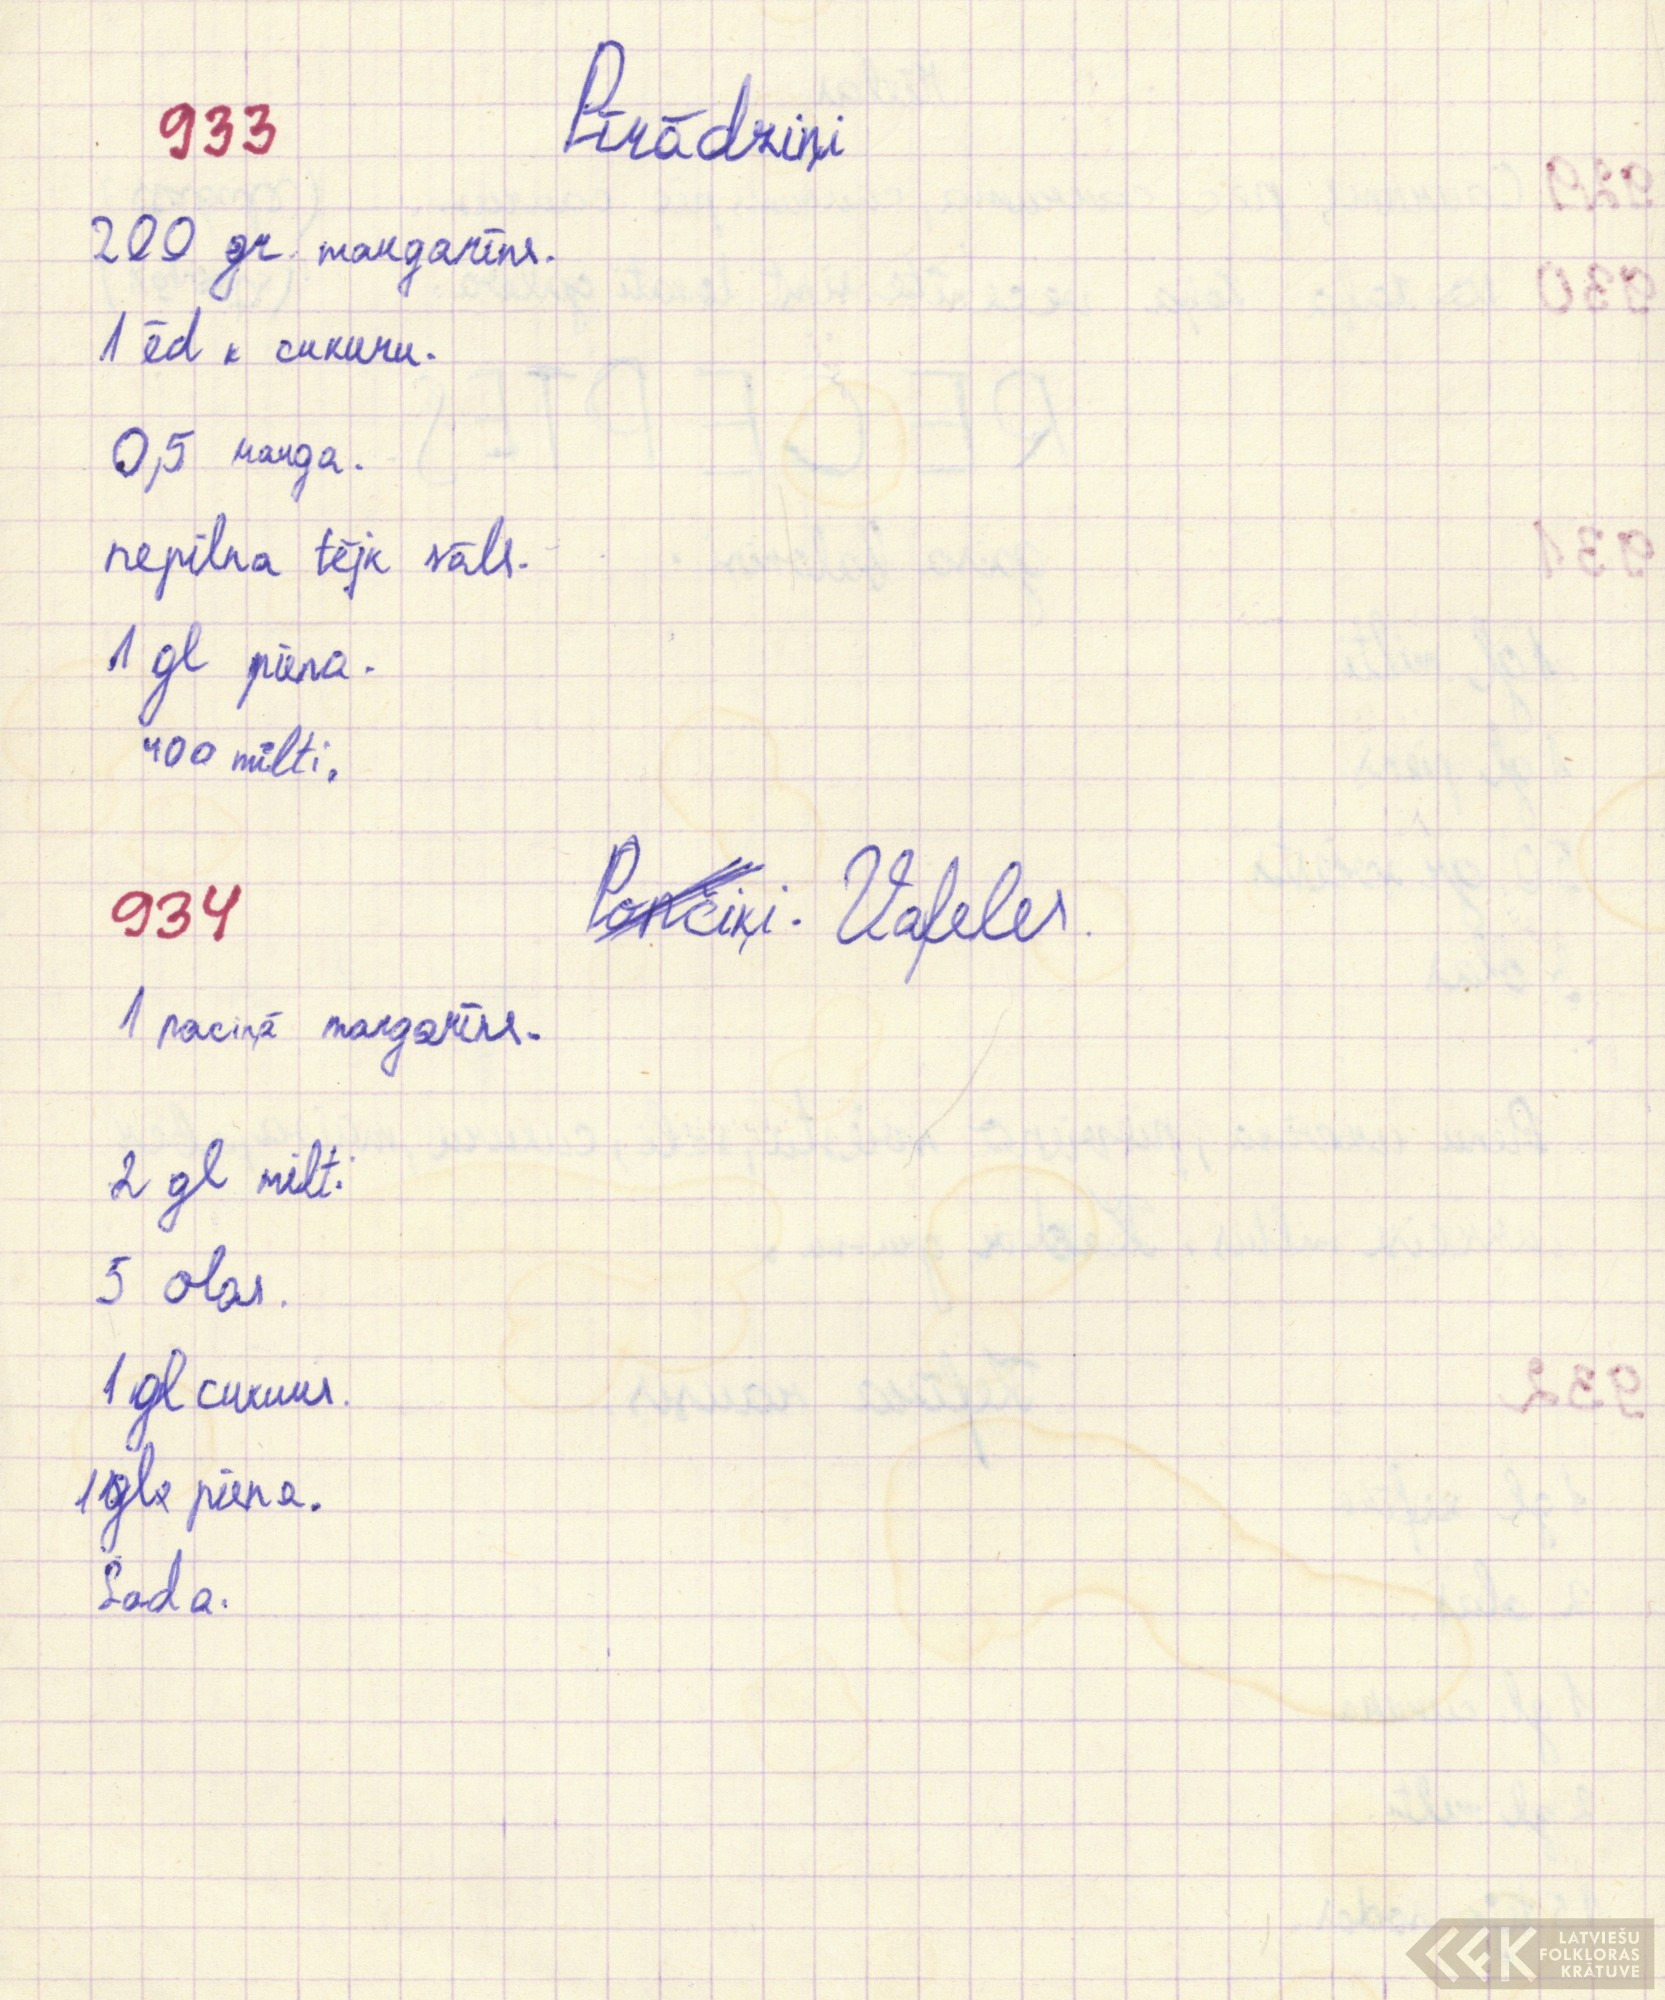 933 Pīrādziņi
200 gr margarīns.
1 ēd k cukuru.
0,5 rauga.
nepilna tējk sāls.
1 gl piena.
400 milti.
934 Pončiķi. Vafeles.
1 paciņā margarīns.
2 gl milti
5 olas.
1 gl cukurs.
piena.
Soda.
LATVIEŠU
FOLKLORAS
KRĀTUVE